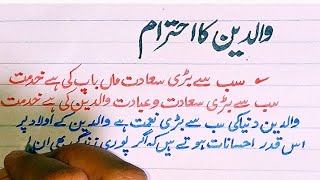 والدین کا احترام
سب سے بڑی سعادت ماں باپ کی ہے خدمت
سب سے بڑی سعادت و عبادت والدین کی ہے خدمت
والدین دنیا کی سب سے بڑی نعمت ہے والدین کے اولاد پر
اس قدر احسانات ہوتے ہیں کہ اگر پوری زندگی بھی ان